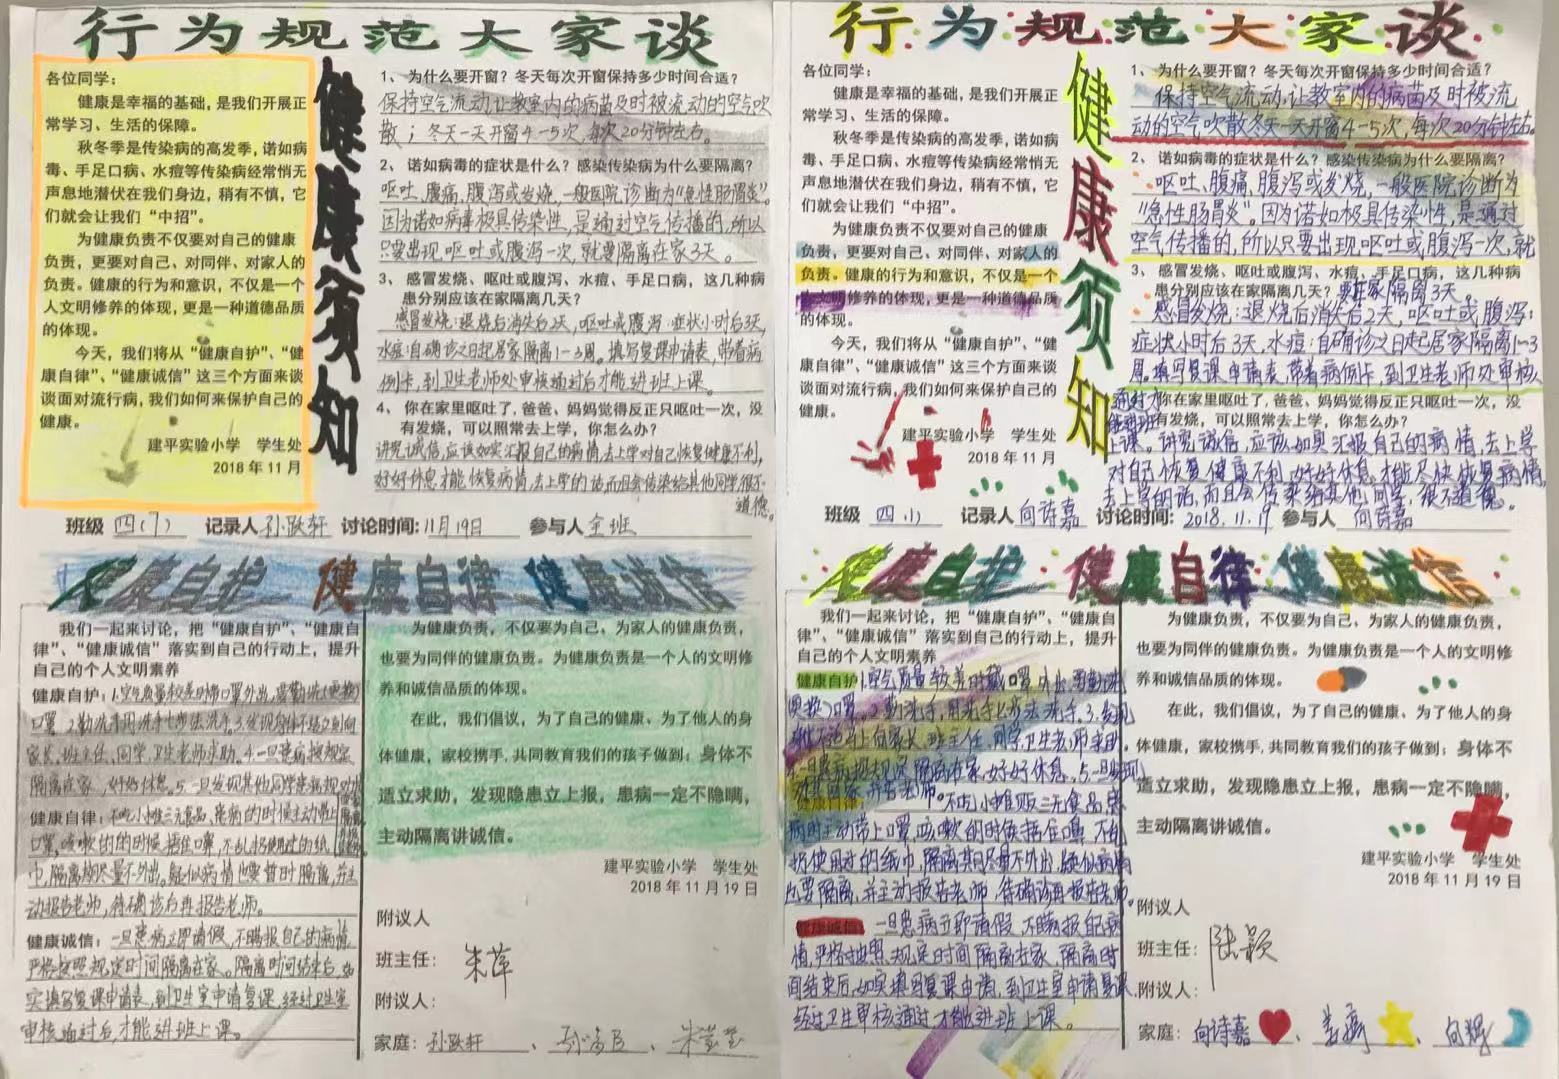 行为规范大家谈
各位同学：
健康是幸福的基础，是我们开展正
常学习、生活的保障。
秋冬季是传染病的高发季，诺如病
毒、手足口病、水痘等传染病经常悄无
声息地潜伏在我们身边，稍有不慎，它
们就会让我们“中招”。
为健康负责不仅要对自己的健康
负责，更要对自己、对同伴、对家人的
负责。健康的行为和意识，不仅是一个
人文明修养的体现，更是一种道德品质
的体现。
今天，我们将从“健康自护”、“健
康自律”、“健康诚信”这三个方面来谈
谈面对流行病，我们如何来保护自己的
健康。
建平实验小学 学生处
2018年11月
健康须知
1、为什么要开窗？冬天每次开窗保持多少时间合适？
保持空气流动让教室内的病菌及时被流动的空气吹
散；冬天一天开窗4-5次，每次20分钟左右。
2、诺如病毒的症状是什么？感染传染病为什么要隔离？
呕吐、腹痛，腹泻或发烧，一般医院诊断为“急性肠胃炎”。
因为诺如病毒极具传染性，是通过空气传播的，所以
只要出现呕吐或腹泻一次，就要隔离在家3天。
3、感冒发烧、呕吐或腹泻、水痘、手足口病，这几种病
患分别应该在家隔离几天？
感冒发烧：退烧后消失后2天，呕吐或腹泻：症状小时后3天，
水痘：自确诊之日起居家隔离1-3周。填写复课申请表，带着病
例卡，到卫生老师处审核通过后才能进班上课。
4、你在家里呕吐了，爸爸、妈妈觉得反正只呕吐一次，没
有发烧，可以照常去上学，你怎么办？
讲究诚信，应该如实汇报自己的病情，去上学对自己恢复健康不利，
好好休息才能恢复病情，去上学的话，而且会传染给其他同学很不
道德。
班级 四(7) 记录人 孙跃轩 讨论时间：11月19日 参与人 全班
健康自护 健康自律 健康诚信
我们一起来讨论，把“健康自护”、“健康自
律”、“健康诚信”落实到自己的行动上，提升
自己的个人文明素养
健康自护：1.空气质量较差时带口罩外出，要勤洗（更换）
口罩。2.勤洗手用洗手七步法洗手。3.发现身体不适立刻向
家长、班主任、同学、卫生老师求助。4.一旦患病按规定
隔离在家，好好休息。5.一旦发现其他同学患病
健康自律：不吃小摊三无食品，患病的时候主动带上
口罩，咳嗽的时候捂住口罩，不乱扔使用过的纸
巾，隔离期尽量不外出。疑似病情也要暂时隔离，并主
动报告老师，待确诊后再报告老师。
健康诚信：一旦患病立即请假，不瞒报自己的病情，
严格按照规定时间隔离在家。隔离时间结束后，如
实填写复课申请表，到卫生室申请复课，经过卫生室
审核通过后，才能进班上课。
为健康负责，不仅要为自己、为家人的健康负责，
也要为同伴的健康负责。为健康负责是一个人的文明修
养和诚信品质的体现。
在此，我们倡议，为了自己的健康、为了他人的身
体健康，家校携手，共同教育我们的孩子做到：身体不
适立求助，发现隐患立上报，患病一定不隐瞒，
主动隔离讲诚信。
建平实验小学 学生处
2018年11月19日
附议人
班主任： 朱萍
附议人：
家庭：孙跃轩、
行为规范大家谈
各位同学：
健康是幸福的基础，是我们开展正
常学习、生活的保障。
秋冬季是传染病的高发季，诺如病
毒、手足口病、水痘等传染病经常悄无
声息地潜伏在我们身边，稍有不慎，它
们就会让我们“中招”。
为健康负责不仅要对自己的健康
负责，更要对自己、对同伴、对家人的
负责。健康的行为和意识，不仅是一个
人文明修养的体现，更是一种道德品质
的体现。
今天，我们将从“健康自护”、“健
康自律”、“健康诚信”这三个方面来谈
谈面对流行病，我们如何来保护自己的
健康。
建平实验小学 学生处
2018年11月
健康须知
1、为什么要开窗？冬天每次开窗保持多少时间合适？
保持空气流动，让教室内的病菌及时被流
动的空气吹散冬天一天开窗4-5次，每次20分钟左右。
2、诺如病毒的症状是什么？感染传染病为什么要隔离？
呕吐、腹痛、腹泻或发烧，一般医院诊断为
“急性肠胃炎”。因为诺如极具传染性，是通过
空气传播的，所以只要出现呕吐或腹泻一次，就
3、感冒发烧、呕吐或腹泻、水痘、手足口病，这几种病
患分别应该在家隔离几天？要在家隔离3天。
感冒发烧：退烧后消失后2天，呕吐或腹泻：
症状小时后3天，水痘：自确诊之日起居家隔离1-3
周。填写复课申请表，带着病例卡，到卫生老师处审核
通过才能进班
你在家里呕吐了，爸爸、妈妈觉得反正只呕吐一次，没
有发烧，可以照常去上学，你怎么办？
上课。讲究诚信，应该如实汇报自己的病情，去上学
对自己恢复健康不利，好好休息，才能尽快恢复病情，
去上学的话，而且会传染给其他同学，很不道德。
班级 四 记录人 向诗嘉 讨论时间：2018.11.19 参与人 向诗嘉
健康自护 健康自律 健康诚信
我们一起来讨论，把“健康自护”、“健康自
律”、“健康诚信”落实到自己的行动上，提升
自己的个人文明素养
健康自护 1.空气质量较差时戴口罩外出，要勤洗
（更换）口罩。2.勤洗手，用洗手七步法洗手。3.发现
身体不适马上向家长、班主任、同学卫生老师求助。
4.一旦患病按规定隔离在家，好好休息。5.一旦发现
健康自律 不吃小摊贩三无食品，患
病时主动带上口罩，咳嗽的时候捂住口鼻，不乱
扔使用过的纸巾，隔离期尽量不外出，疑似病情
也要隔离，并主动报告老师，待确诊再报告老师。
健康诚信：一旦患病立即请假，不瞒报自己病
情，严格按照规定时间隔离在家，隔离时
间结束后，如实填写复课申请，到卫生室申请复课，
经过卫生审核通过才能进班上课。
为健康负责，不仅要为自己、为家人的健康负责，
也要为同伴的健康负责。为健康负责是一个人的文明修
养和诚信品质的体现。
在此，我们倡议，为了自己的健康、为了他人的身
体健康，家校携手，共同教育我们的孩子做到：身体不
适立求助，发现隐患立上报，患病一定不隐瞒，
主动隔离讲诚信。
建平实验小学 学生处
2018年11月19日
附议人
班主任： 陆颖
附议人：
家庭：向诗嘉、 、向辉